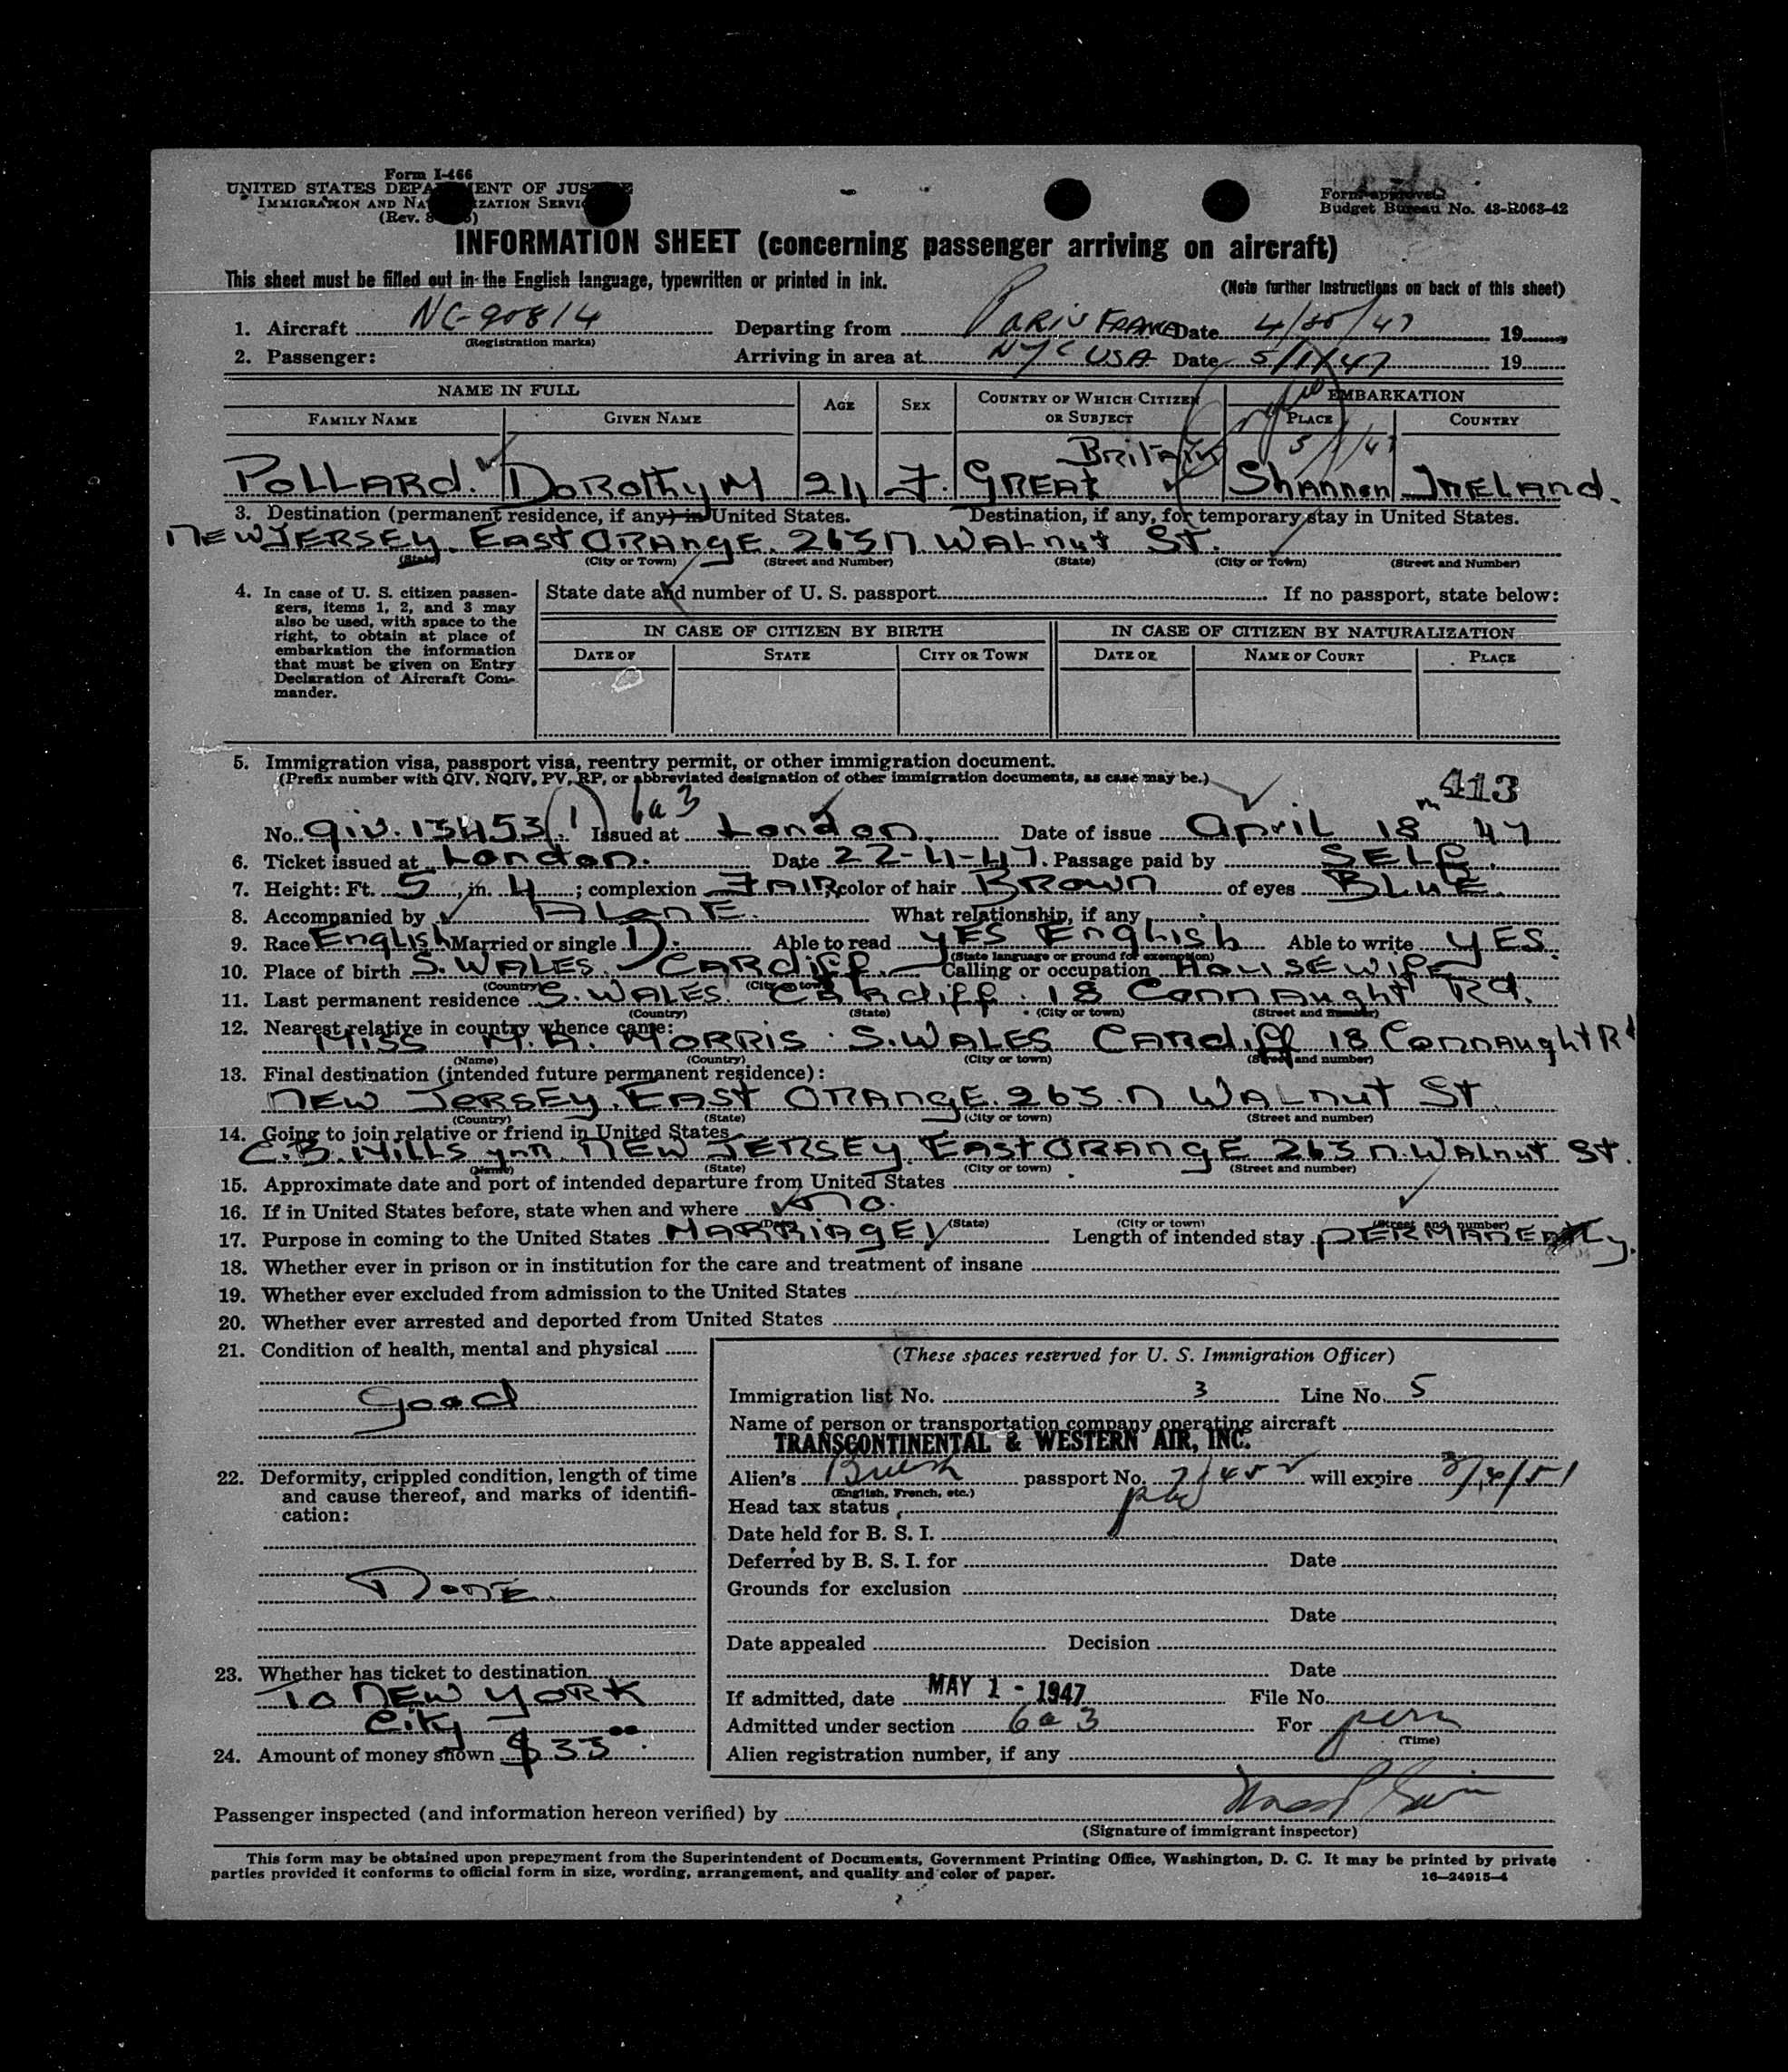 Form I-466
UNITED STATES DEPARTMENT OF JUSTICE
IMMIGRATION AND NATURALIZATION SERVICE
(Rev. 8
Form approved
Budget Bureau No. 43-R063-42
INFORMATION SHEET (concerning passenger arriving on aircraft)
This sheet must be filled out in the English language, typewritten or printed in ink. (Note further instructions on back of this sheet)
1. Aircraft NC-90814 Departing from PARIS FRANCE Date 4/30/47 19
(Registration marks)
2. Passenger: Arriving in area at NYC USA Date 5/1/47 19
NAME IN FULL AGE SEX COUNTRY OF WHICH CITIZEN OR SUBJECT EMBARKATION
FAMILY NAME GIVEN NAME PLACE COUNTRY
5/1/47
POLLARD. DOROTHY M 24 F. GREAT BRITAIN SHANNON IRELAND.
3. Destination (permanent residence, if any) in United States. Destination, if any, for temporary stay in United States.
NEW JERSEY. EAST ORANGE. 263 N WALNUT ST.
(State) (City or Town) (Street and Number) (State) (City or Town) (Street and Number)
4. In case of U. S. citizen passengers, items 1, 2, and 3 may also be used, with space to the right, to obtain at place of embarkation the information that must be given on Entry Declaration of Aircraft Commander.
State date and number of U. S. passport If no passport, state below:
IN CASE OF CITIZEN BY BIRTH IN CASE OF CITIZEN BY NATURALIZATION
DATE OF STATE CITY OR TOWN DATE OF NAME OF COURT PLACE
5. Immigration visa, passport visa, reentry permit, or other immigration document.
(Prefix number with QIV, NQIV, PV, RP, or abbreviated designation of other immigration documents, as case may be.)
6a3 413
No. QIV. 13453 (1) Issued at London Date of issue April 18 47
6. Ticket issued at London. Date 22-4-47. Passage paid by SELF.
7. Height: Ft. 5, in. 4; complexion FAIR, color of hair BROWN of eyes BLUE.
8. Accompanied by ALONE. What relationship, if any
9. Race English Married or single D. Able to read YES English Able to write YES
(State language or ground for exemption)
10. Place of birth S. WALES. CARDIFF. Calling or occupation HOUSEWIFE
(Country) (City or town)
11. Last permanent residence S. WALES. CARDIFF. 18 CONNAUGHT RD.
(Country) (State) (City or town) (Street and number)
12. Nearest relative in country whence came:
MISS M.A. MORRIS. S. WALES CARDIFF 18 CONNAUGHT Rd
(Name) (Country) (City or town) (Street and number)
13. Final destination (intended future permanent residence):
NEW JERSEY. EAST ORANGE. 263. N WALNUT ST
(Country) (State) (City or town) (Street and number)
14. Going to join relative or friend in United States
C.B. MILLS NEW JERSEY EAST ORANGE 263 N. WALNUT ST.
(Name) (State) (City or town) (Street and number)
15. Approximate date and port of intended departure from United States
16. If in United States before, state when and where NO.
(Date) (State) (City or town) (Street and number)
17. Purpose in coming to the United States MARRIAGE Length of intended stay PERMANENTLY.
18. Whether ever in prison or in institution for the care and treatment of insane
19. Whether ever excluded from admission to the United States
20. Whether ever arrested and deported from United States
21. Condition of health, mental and physical
Good
22. Deformity, crippled condition, length of time and cause thereof, and marks of identification:
NONE
23. Whether has ticket to destination
TO NEW YORK
City
24. Amount of money shown $ 33 00.
(These spaces reserved for U. S. Immigration Officer)
Immigration list No. 3 Line No. 5
Name of person or transportation company operating aircraft
TRANSCONTINENTAL & WESTERN AIR, INC.
Alien's British passport No. will expire 3/6/51
(English, French, etc.)
Head tax status pd
Date held for B. S. I.
Deferred by B. S. I. for Date
Grounds for exclusion
Date
Date appealed Decision
Date
If admitted, date MAY 1 - 1947 File No.
Admitted under section 6a3 For perm
(Time)
Alien registration number, if any
Passenger inspected (and information hereon verified) by
(Signature of immigrant inspector)
This form may be obtained upon prepayment from the Superintendent of Documents, Government Printing Office, Washington, D. C. It may be printed by private
parties provided it conforms to official form in size, wording, arrangement, and quality and color of paper. 16—24915-4